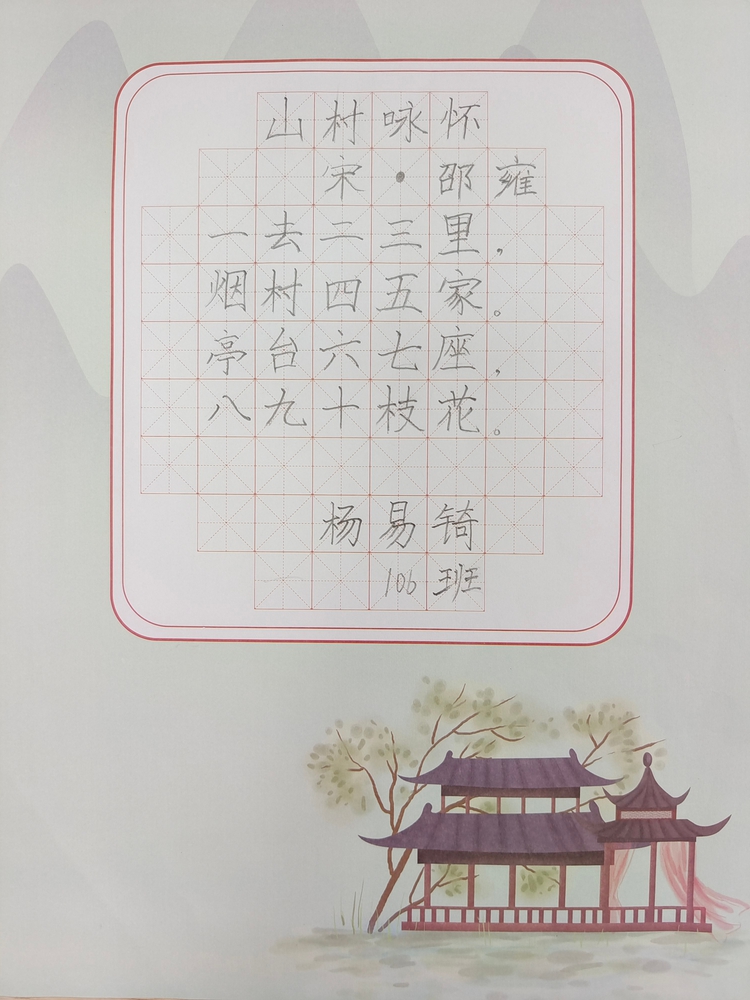 山村咏怀
宋·邵雍
一去二三里，
烟村四五家。
亭台六七座，
八九十枝花。
杨易锜
106班